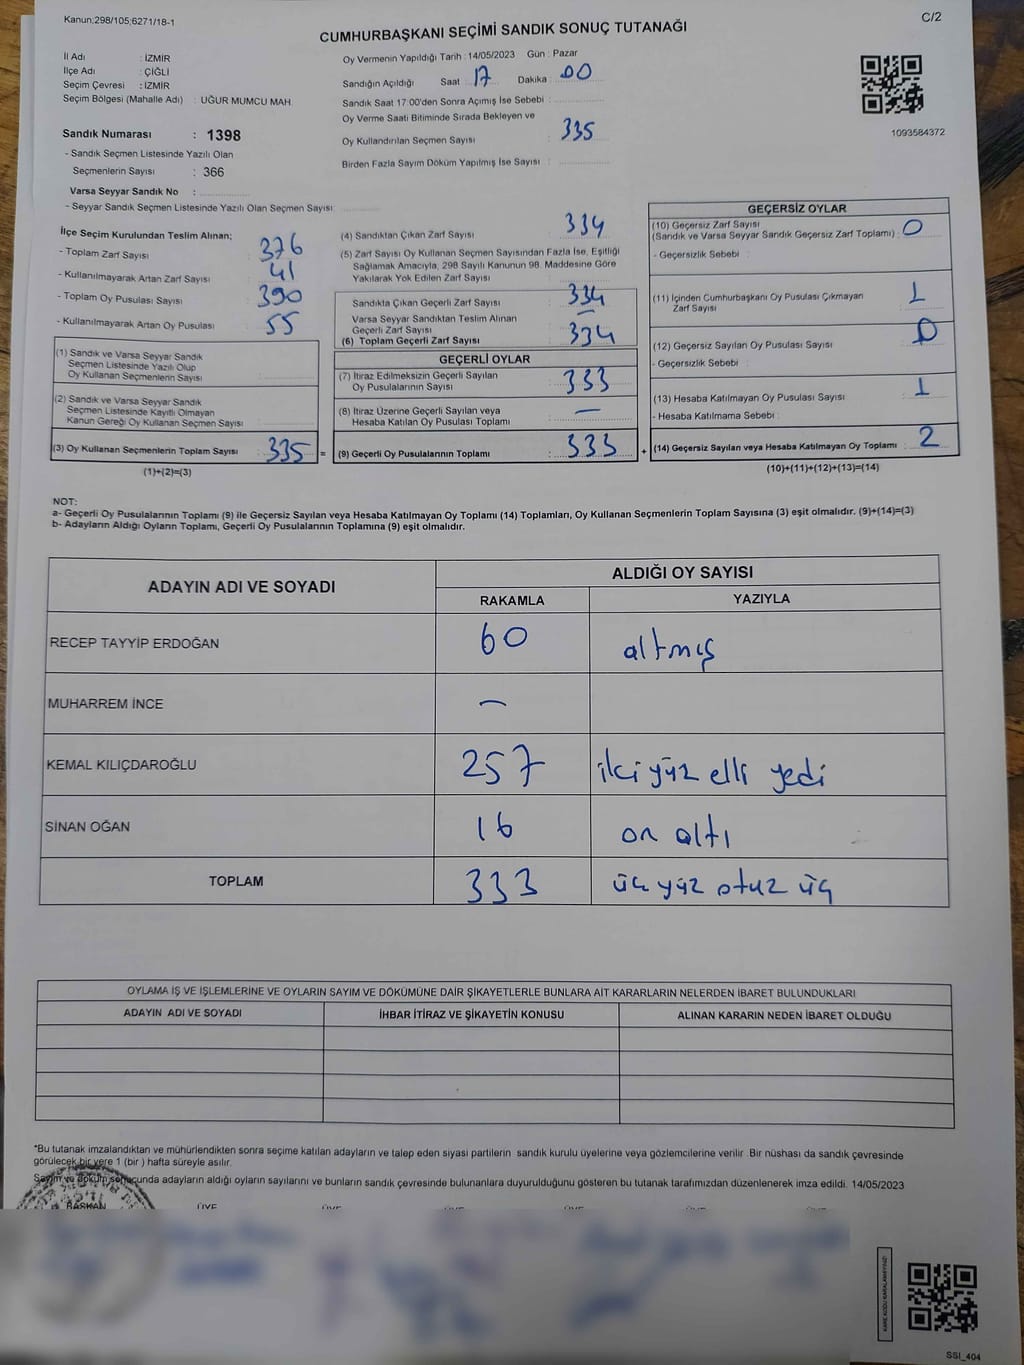 Kanun;298/105;6271/18-1
C/2
CUMHURBAŞKANI SEÇİMİ SANDIK SONUÇ TUTANAĞI
İl Adı : İZMİR
İlçe Adı : ÇİĞLİ
Seçim Çevresi : İZMİR
Seçim Bölgesi (Mahalle Adı) : UĞUR MUMCU MAH.
Sandık Numarası : 1398
- Sandık Seçmen Listesinde Yazılı Olan
Seçmenlerin Sayısı : 366
Varsa Seyyar Sandık No :
- Seyyar Sandık Seçmen Listesinde Yazılı Olan Seçmen Sayısı:
Oy Vermenin Yapıldığı Tarih : 14/05/2023 Gün : Pazar
Sandığın Açıldığı Saat : 17 Dakika : 00
Sandık Saat 17:00'den Sonra Açımış İse Sebebi :
Oy Verme Saati Bitiminde Sırada Bekleyen ve
Oy Kullandırılan Seçmen Sayısı : 335
Birden Fazla Sayım Döküm Yapılmış İse Sayısı :
1093584372
İlçe Seçim Kurulundan Teslim Alınan;
- Toplam Zarf Sayısı : 376
- Kullanılmayarak Artan Zarf Sayısı : 41
- Toplam Oy Pusulası Sayısı : 390
- Kullanılmayarak Artan Oy Pusulası : 55
(1) Sandık ve Varsa Seyyar Sandık
Seçmen Listesinde Yazılı Olup
Oy Kullanan Seçmenlerin Sayısı :
(2) Sandık ve Varsa Seyyar Sandık
Seçmen Listesinde Kayıtlı Olmayan
Kanun Gereği Oy Kullanan Seçmen Sayısı :
(3) Oy Kullanan Seçmenlerin Toplam Sayısı : 335 =
(1)+(2)=(3)
(4) Sandıktan Çıkan Zarf Sayısı : 334
(5) Zarf Sayısı Oy Kullanan Seçmen Sayısından Fazla İse, Eşitliği
Sağlamak Amacıyla, 298 Sayılı Kanunun 98. Maddesine Göre
Yakılarak Yok Edilen Zarf Sayısı :
Sandıkta Çıkan Geçerli Zarf Sayısı : 334
Varsa Seyyar Sandıktan Teslim Alınan
Geçerli Zarf Sayısı : —
(6) Toplam Geçerli Zarf Sayısı : 334
GEÇERLİ OYLAR
(7) İtiraz Edilmeksizin Geçerli Sayılan
Oy Pusulalarının Sayısı : 333
(8) İtiraz Üzerine Geçerli Sayılan veya
Hesaba Katılan Oy Pusulası Toplamı : —
(9) Geçerli Oy Pusulalarının Toplamı : 333 +
GEÇERSİZ OYLAR
(10) Geçersiz Zarf Sayısı
(Sandık ve Varsa Seyyar Sandık Geçersiz Zarf Toplamı) : 0
- Geçersizlik Sebebi :
(11) İçinden Cumhurbaşkanı Oy Pusulası Çıkmayan
Zarf Sayısı : 1
(12) Geçersiz Sayılan Oy Pusulası Sayısı : 0
- Geçersizlik Sebebi :
(13) Hesaba Katılmayan Oy Pusulası Sayısı : 1
- Hesaba Katılmama Sebebi :
(14) Geçersiz Sayılan veya Hesaba Katılmayan Oy Toplamı : 2
(10)+(11)+(12)+(13)=(14)
NOT:
a- Geçerli Oy Pusulalarının Toplamı (9) ile Geçersiz Sayılan veya Hesaba Katılmayan Oy Toplamı (14) Toplamları, Oy Kullanan Seçmenlerin Toplam Sayısına (3) eşit olmalıdır. (9)+(14)=(3)
b- Adayların Aldığı Oyların Toplamı, Geçerli Oy Pusulalarının Toplamına (9) eşit olmalıdır.
ADAYIN ADI VE SOYADI ALDIĞI OY SAYISI
RAKAMLA YAZIYLA
RECEP TAYYİP ERDOĞAN 60 altmış
MUHARREM İNCE —
KEMAL KILIÇDAROĞLU 257 iki yüz elli yedi
SİNAN OĞAN 16 on altı
TOPLAM 333 üç yüz otuz üç
OYLAMA İŞ VE İŞLEMLERİNE VE OYLARIN SAYIM VE DÖKÜMÜNE DAİR ŞİKAYETLERLE BUNLARA AİT KARARLARIN NELERDEN İBARET BULUNDUKLARI
ADAYIN ADI VE SOYADI İHBAR İTİRAZ VE ŞİKAYETİN KONUSU ALINAN KARARIN NEDEN İBARET OLDUĞU
*Bu tutanak imzalandıktan ve mühürlendikten sonra seçime katılan adayların ve talep eden siyasi partilerin sandık kurulu üyelerine veya gözlemcilerine verilir. Bir nüshası da sandık çevresinde
görülecek bir yere 1 (bir ) hafta süreyle asılır.
Sayım ve döküm sonucunda adayların aldığı oyların sayılarını ve bunların sandık çevresinde bulunanlara duyurulduğunu gösteren bu tutanak tarafımızdan düzenlenerek imza edildi. 14/05/2023
BAŞKAN ÜYE ÜYE ÜYE ÜYE ÜYE ÜYE
SSI_404